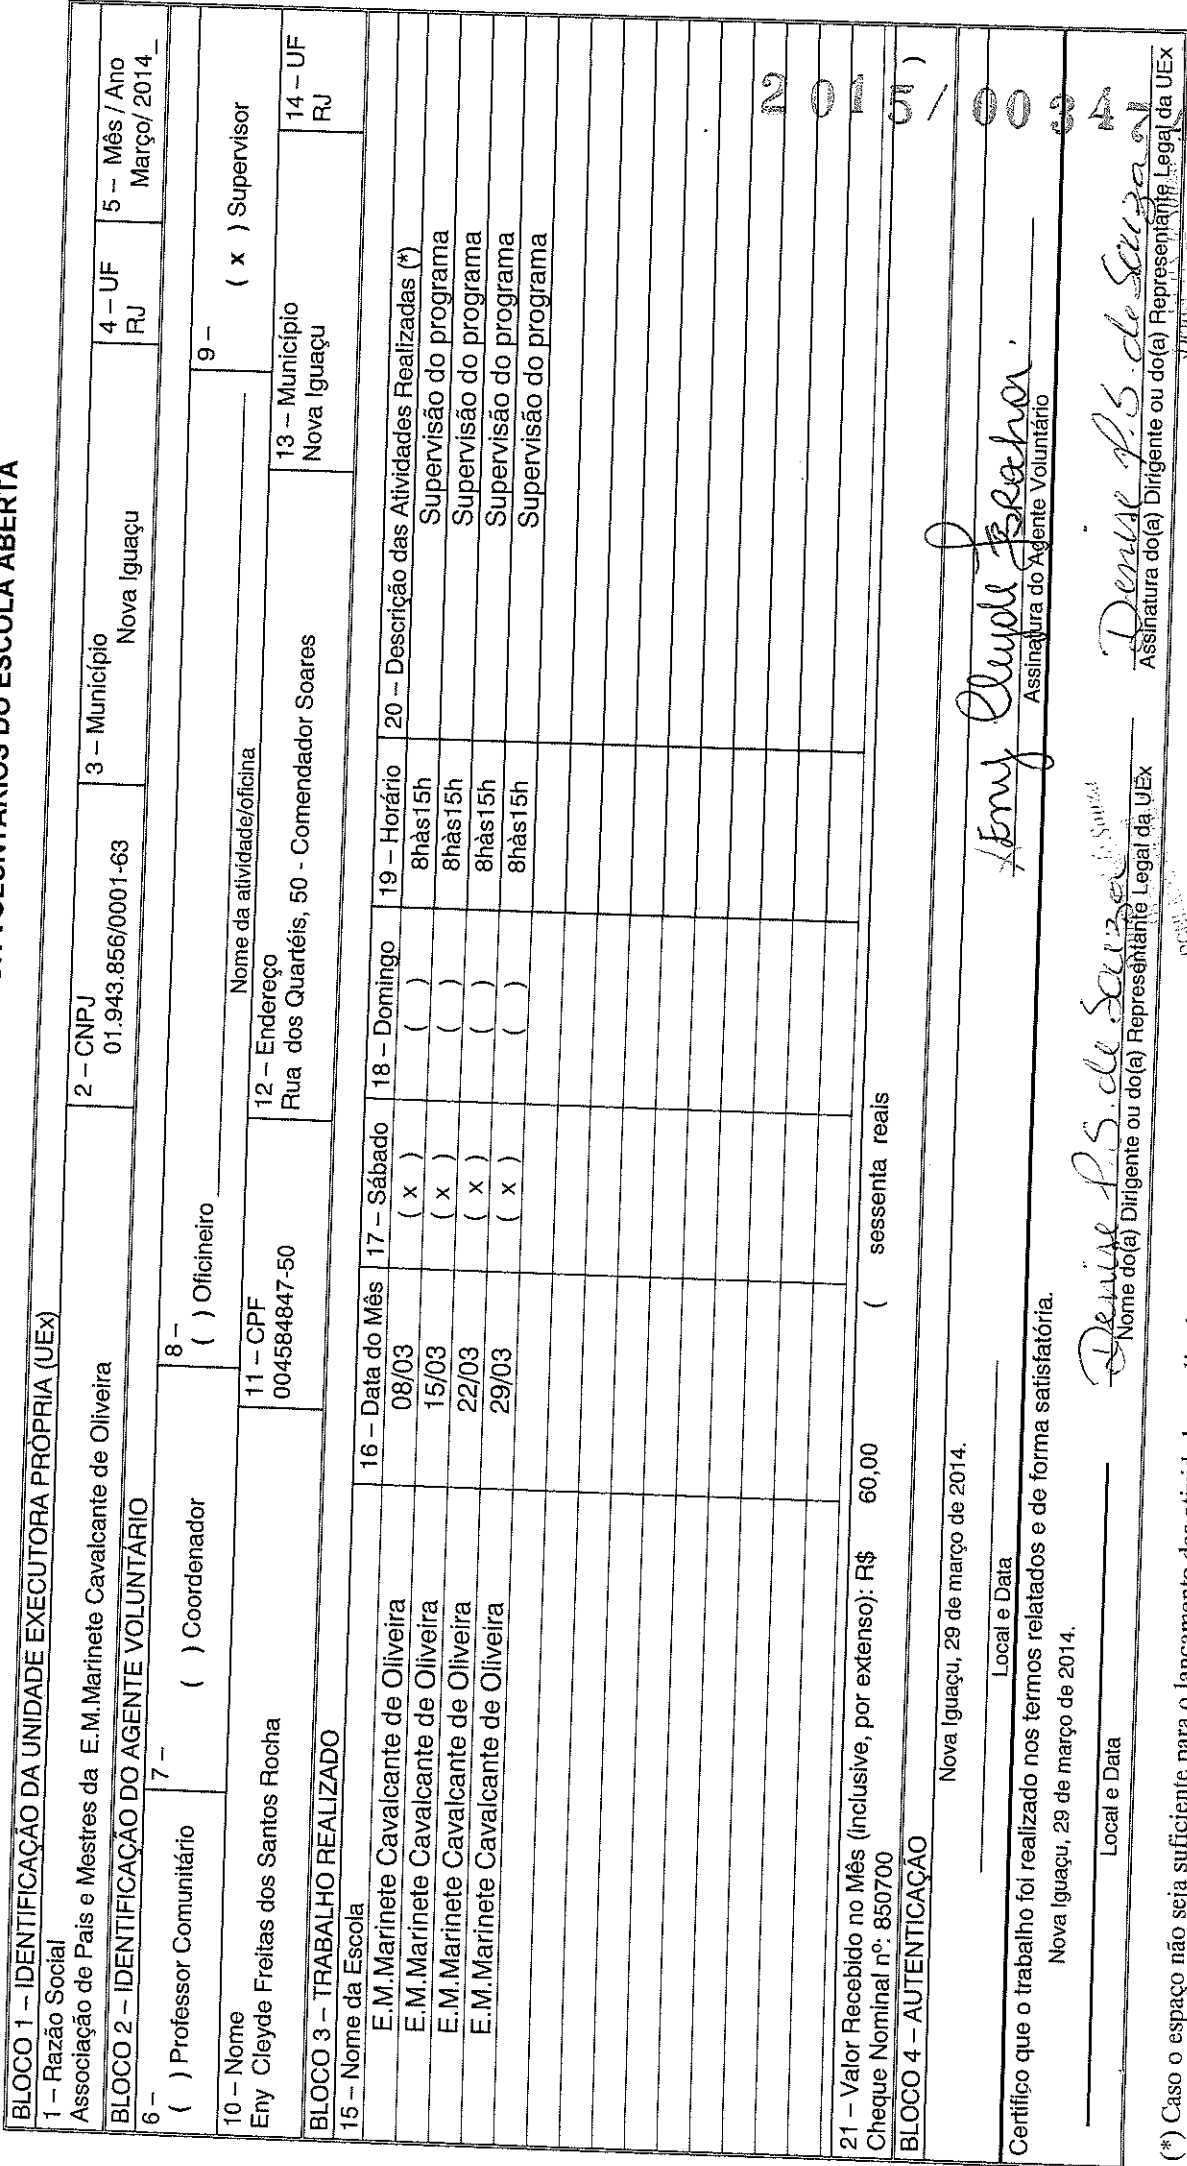 VOLUNTÁRIOS DO ESCOLA ABERTA
BLOCO 1 – IDENTIFICAÇÃO DA UNIDADE EXECUTORA PRÓPRIA (UEx)
1 – Razão Social
Associação de Pais e Mestres da E.M.Marinete Cavalcante de Oliveira
2 – CNPJ
01.943.856/0001-63
3 – Município
Nova Iguaçu
4 – UF
RJ
5 – Mês / Ano
Março/ 2014_
BLOCO 2 – IDENTIFICAÇÃO DO AGENTE VOLUNTÁRIO
6 –
( ) Professor Comunitário
7 –
( ) Coordenador
8 –
( ) Oficineiro
Nome da atividade/oficina
9 –
( x ) Supervisor
10 – Nome
Eny Cleyde Freitas dos Santos Rocha
11 – CPF
004584847-50
12 – Endereço
Rua dos Quartéis, 50 - Comendador Soares
13 – Município
Nova Iguaçu
14 – UF
RJ
BLOCO 3 – TRABALHO REALIZADO
15 – Nome da Escola 16 – Data do Mês 17 – Sábado 18 – Domingo 19 – Horário 20 – Descrição das Atividades Realizadas (*)
E.M.Marinete Cavalcante de Oliveira 08/03 ( x ) ( ) 8hàs15h Supervisão do programa
E.M.Marinete Cavalcante de Oliveira 15/03 ( x ) ( ) 8hàs15h Supervisão do programa
E.M.Marinete Cavalcante de Oliveira 22/03 ( x ) ( ) 8hàs15h Supervisão do programa
E.M.Marinete Cavalcante de Oliveira 29/03 ( x ) ( ) 8hàs15h Supervisão do programa
21 – Valor Recebido no Mês (inclusive, por extenso): R$ 60,00 ( sessenta reais )
Cheque Nominal nº: 850700
BLOCO 4 – AUTENTICAÇÃO
2015/0034
Nova Iguaçu, 29 de março de 2014.
Local e Data
Eny Cleyde Rocha
Assinatura do Agente Voluntário
Certifico que o trabalho foi realizado nos termos relatados e de forma satisfatória.
Nova Iguaçu, 29 de março de 2014.
Local e Data
Denise P.S. de Souza
Nome do(a) Dirigente ou do(a) Representante Legal da UEx
Denise P.S. de Souza
Assinatura do(a) Dirigente ou do(a) Representante Legal da UEx
(*) Caso o espaço não seja suficiente para o lançamento das